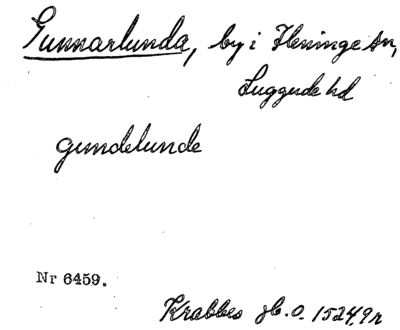 Gunnarlunda, by i Fleninge sn,
Luggude hd
gundelunde
Nr 6459.
Krabbes jb. o. 1524, 9r